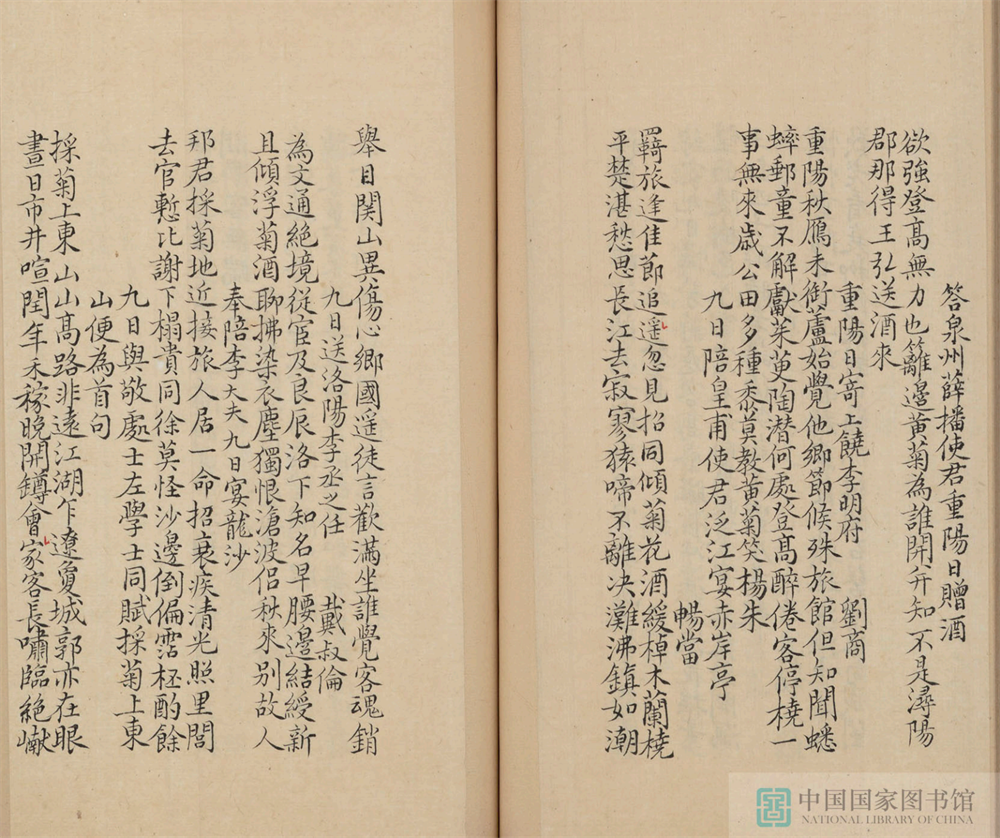 答泉州薛播使君重陽日贈酒
欲強登高無力也籬邊黃菊為誰開共知不是潯陽
郡那得王弘送酒來
重陽日寄上饒李明府 劉商
重陽秋鴈未銜蘆始覺他鄉節候殊旅館但知聞蟋
蟀郵童不解獻茱萸陶潜何處登高醉倦客停橈一
事無來歳公田多種黍莫教黃菊笑楊朱
九日陪皇甫使君泛江宴赤岸亭
暢當
羇旅逢佳節追遥忽見招同傾菊花酒緩棹木蘭橈
平楚湛愁思長江去寂寥猿啼不離决灘沸鎮如潮
舉目関山異傷心鄉國遥徒言歡滿坐誰覺客魂銷
九日送洛陽李丞之任 戴叔倫
為文通絕境從宦及良辰洛下知名早腰邊結綬新
且傾浮菊酒聊拂染衣塵獨恨滄波侶秋來别故人
奉陪李大夫九日宴龍沙
邦君採菊地近接旅人居一命招衰疾清光照里閭
去官慙比謝下榻貴同徐莫怪沙邊倒偏霑杯酌餘
九日與敬處士左學士同賦採菊上東
山便為首句
採菊上東山山高路非遠江湖乍遼夐城郭亦在眼
晝日市井喧閏年禾稼晚開鐏會家客長嘯臨絕巘
中国国家图书馆
NATIONAL LIBRARY OF CHINA